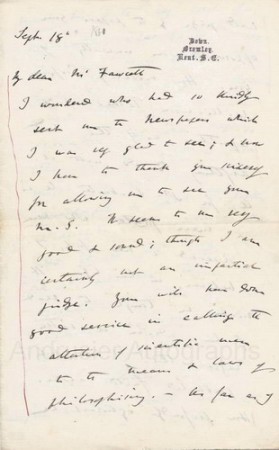 Down.
Bromley.
Kent. S.E.
Sept 18
My dear Mr Fawcett
I wondered who had so kindly
sent me the Newspapers which
I was very glad to see; & now
I have to thank you sincerely
for allowing me to see your
M.S. It seems to me very
good & sound; though I am
certainly not an impartial
judge. You will have done
good service in calling the
attention of scientific men
to the means & laws of
philosophising. — As far as I